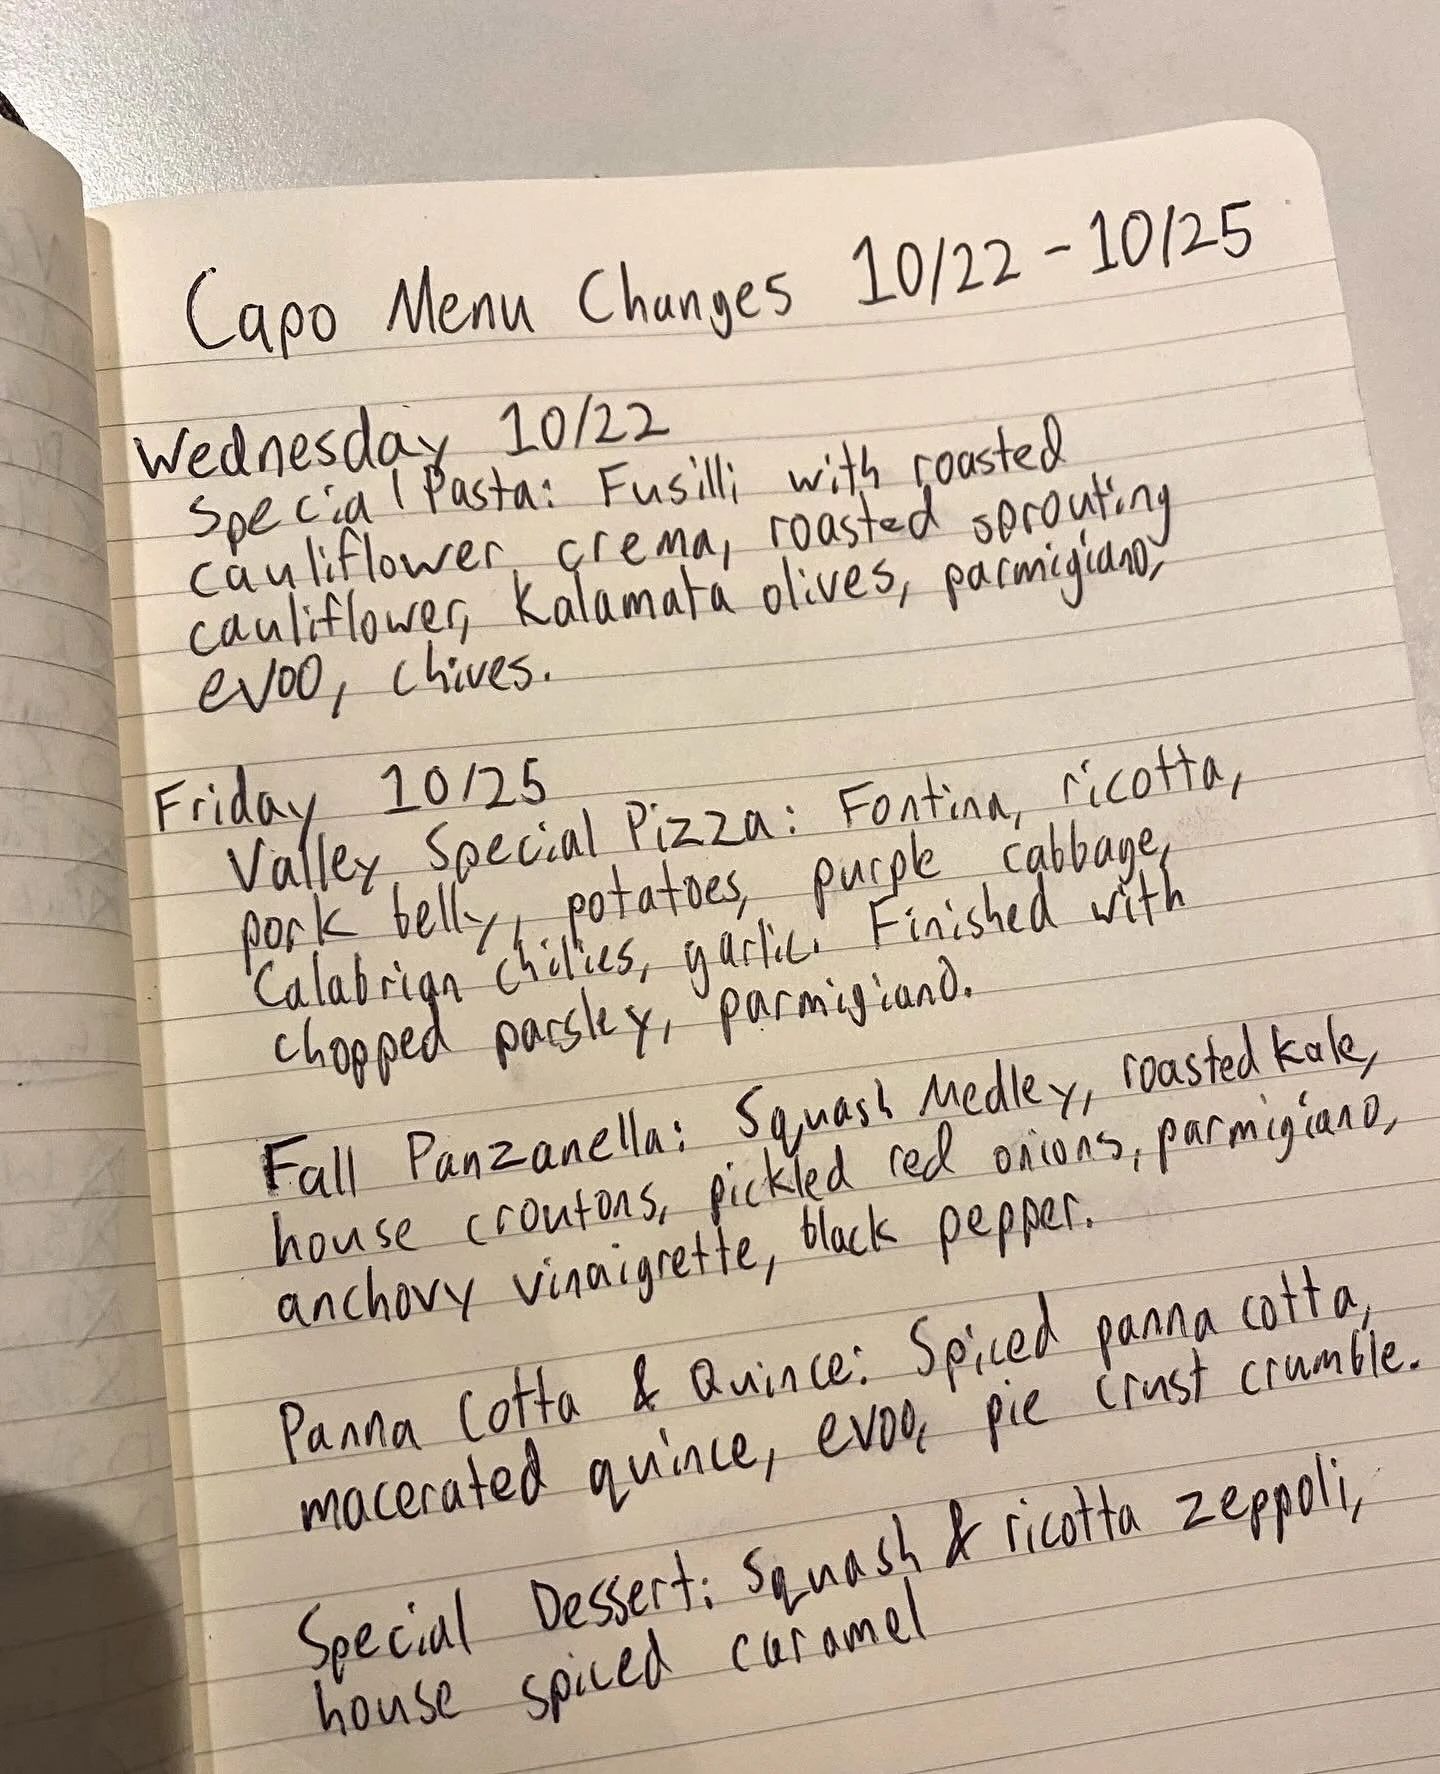 Capo Menu Changes 10/22 - 10/25
Wednesday 10/22
Special Pasta: Fusilli with roasted
cauliflower crema, roasted sprouting
cauliflower, Kalamata olives, parmigiano,
evoo, chives.
Friday 10/25
Valley Special Pizza: Fontina, ricotta,
pork belly, potatoes, purple cabbage,
Calabrian chilies, garlic. Finished with
chopped parsley, parmigiano.
Fall Panzanella: Squash Medley, roasted kale,
house croutons, pickled red onions, parmigiano,
anchovy vinaigrette, black pepper.
Panna Cotta & Quince: Spiced panna cotta,
macerated quince, evoo, pie crust crumble.
Special Dessert: Squash & ricotta zeppoli,
house spiced caramel